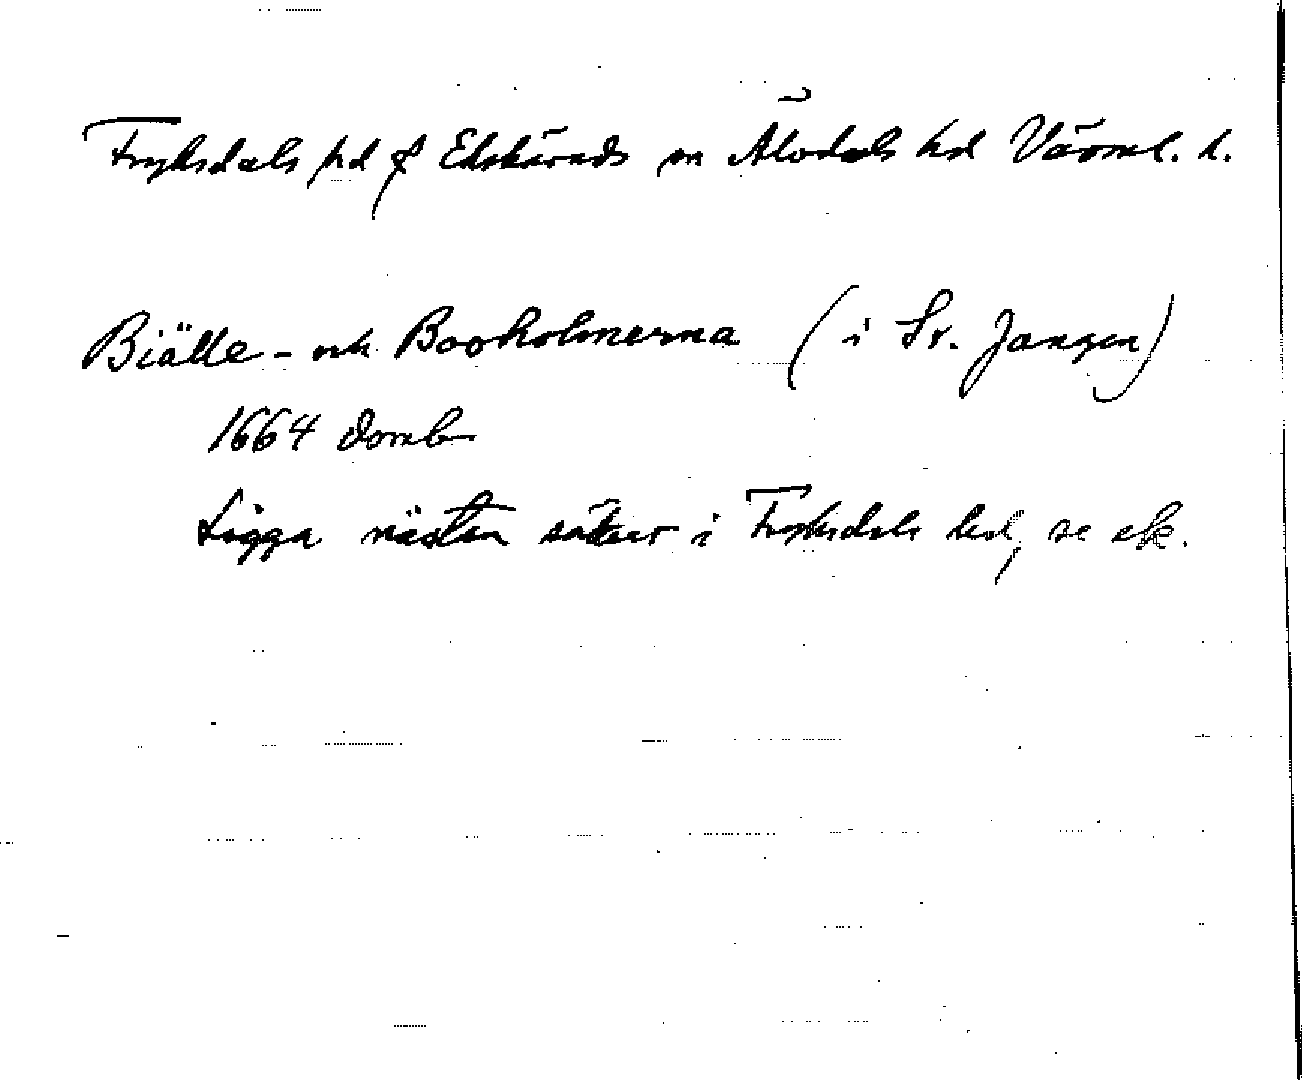 Fryksdals hd f Ekshärads sn Älvdals hd Värml. l.
Biälle- och Booholmerna (i St. Jangen)
1664 domb
Ligga nästan säkert i Fryksdals hd, se ek.